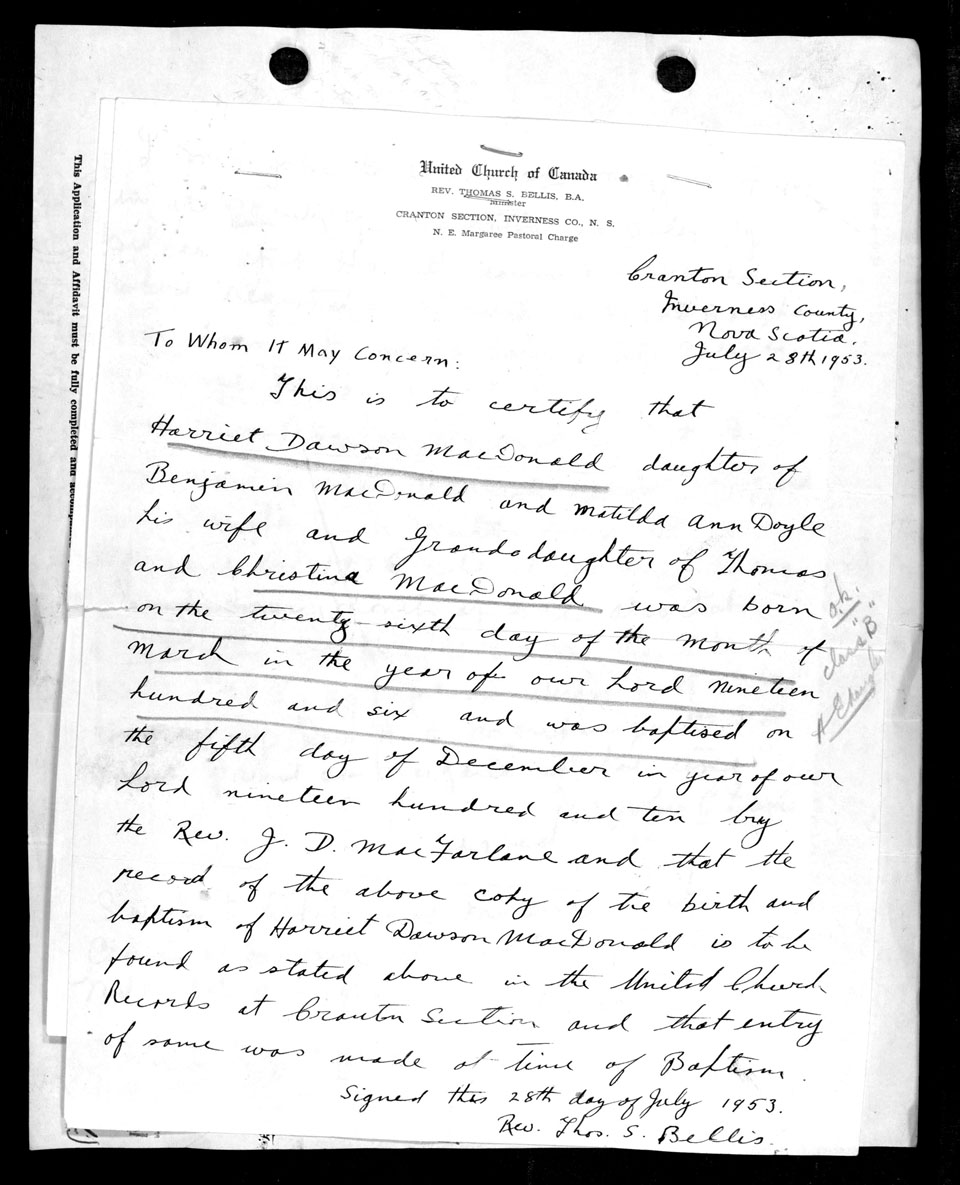 United Church of Canada
REV. THOMAS S. BELLIS, B.A.
Minister
CRANTON SECTION, INVERNESS CO., N. S.
N. E. Margaree Pastoral Charge
Cranton Section,
Inverness County,
Nova Scotia.
July 28th 1953.
To Whom It May Concern:
This is to certify that
Harriet Dawson MacDonald daughter of
Benjamin MacDonald and Matilda Ann Doyle
his wife and Grandodaughter of Thomas
and Christina MacDonald was born
on the twenty-sixth day of the month of
March in the year of our Lord nineteen
hundred and six and was baptised on
the fifth day of December in year of our
Lord nineteen hundred and ten by
the Rev. J. D. MacFarlane and that the
record of the above coty of the birth and
baptism of Harriet Dawson MacDonald is to be
found as stated above in the United Church
Records at Cranton Section and that entry
of same was made at time of Baptism.
Signed this 28th day of July 1953.
Rev. Thos. S. Bellis.
O.K.
class "B"
This Application and Affidavit must be fully completed and